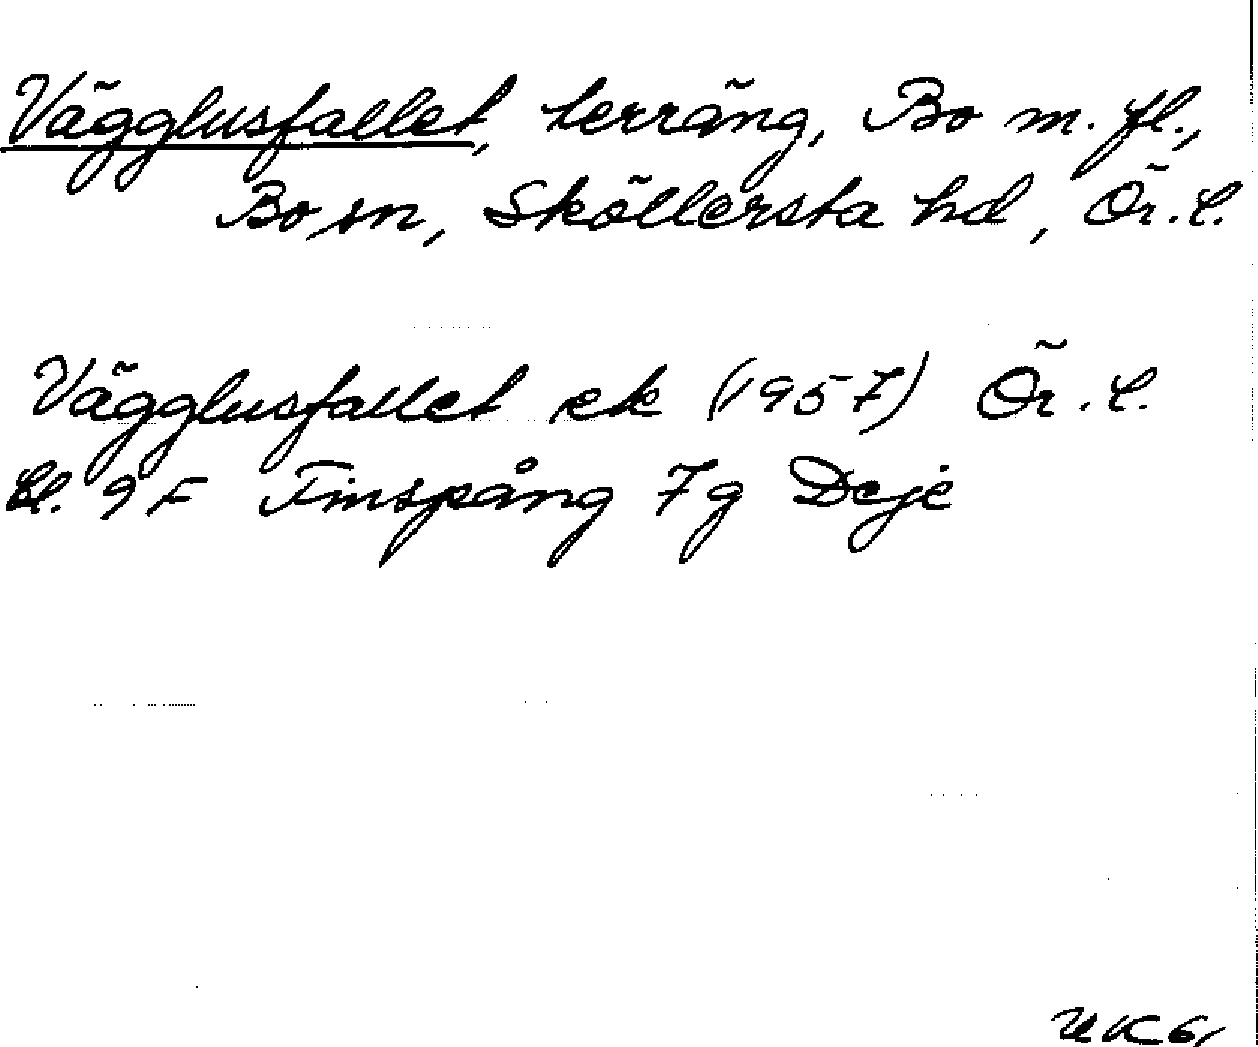 Vägglusfallet, terräng, Bo m. fl.,
Bo sn, Sköllersta hd, Ör. l.
Vägglusfallet ek (1957) Ör. l.
bl. 9 F Finspång 7g Deje
UK 61